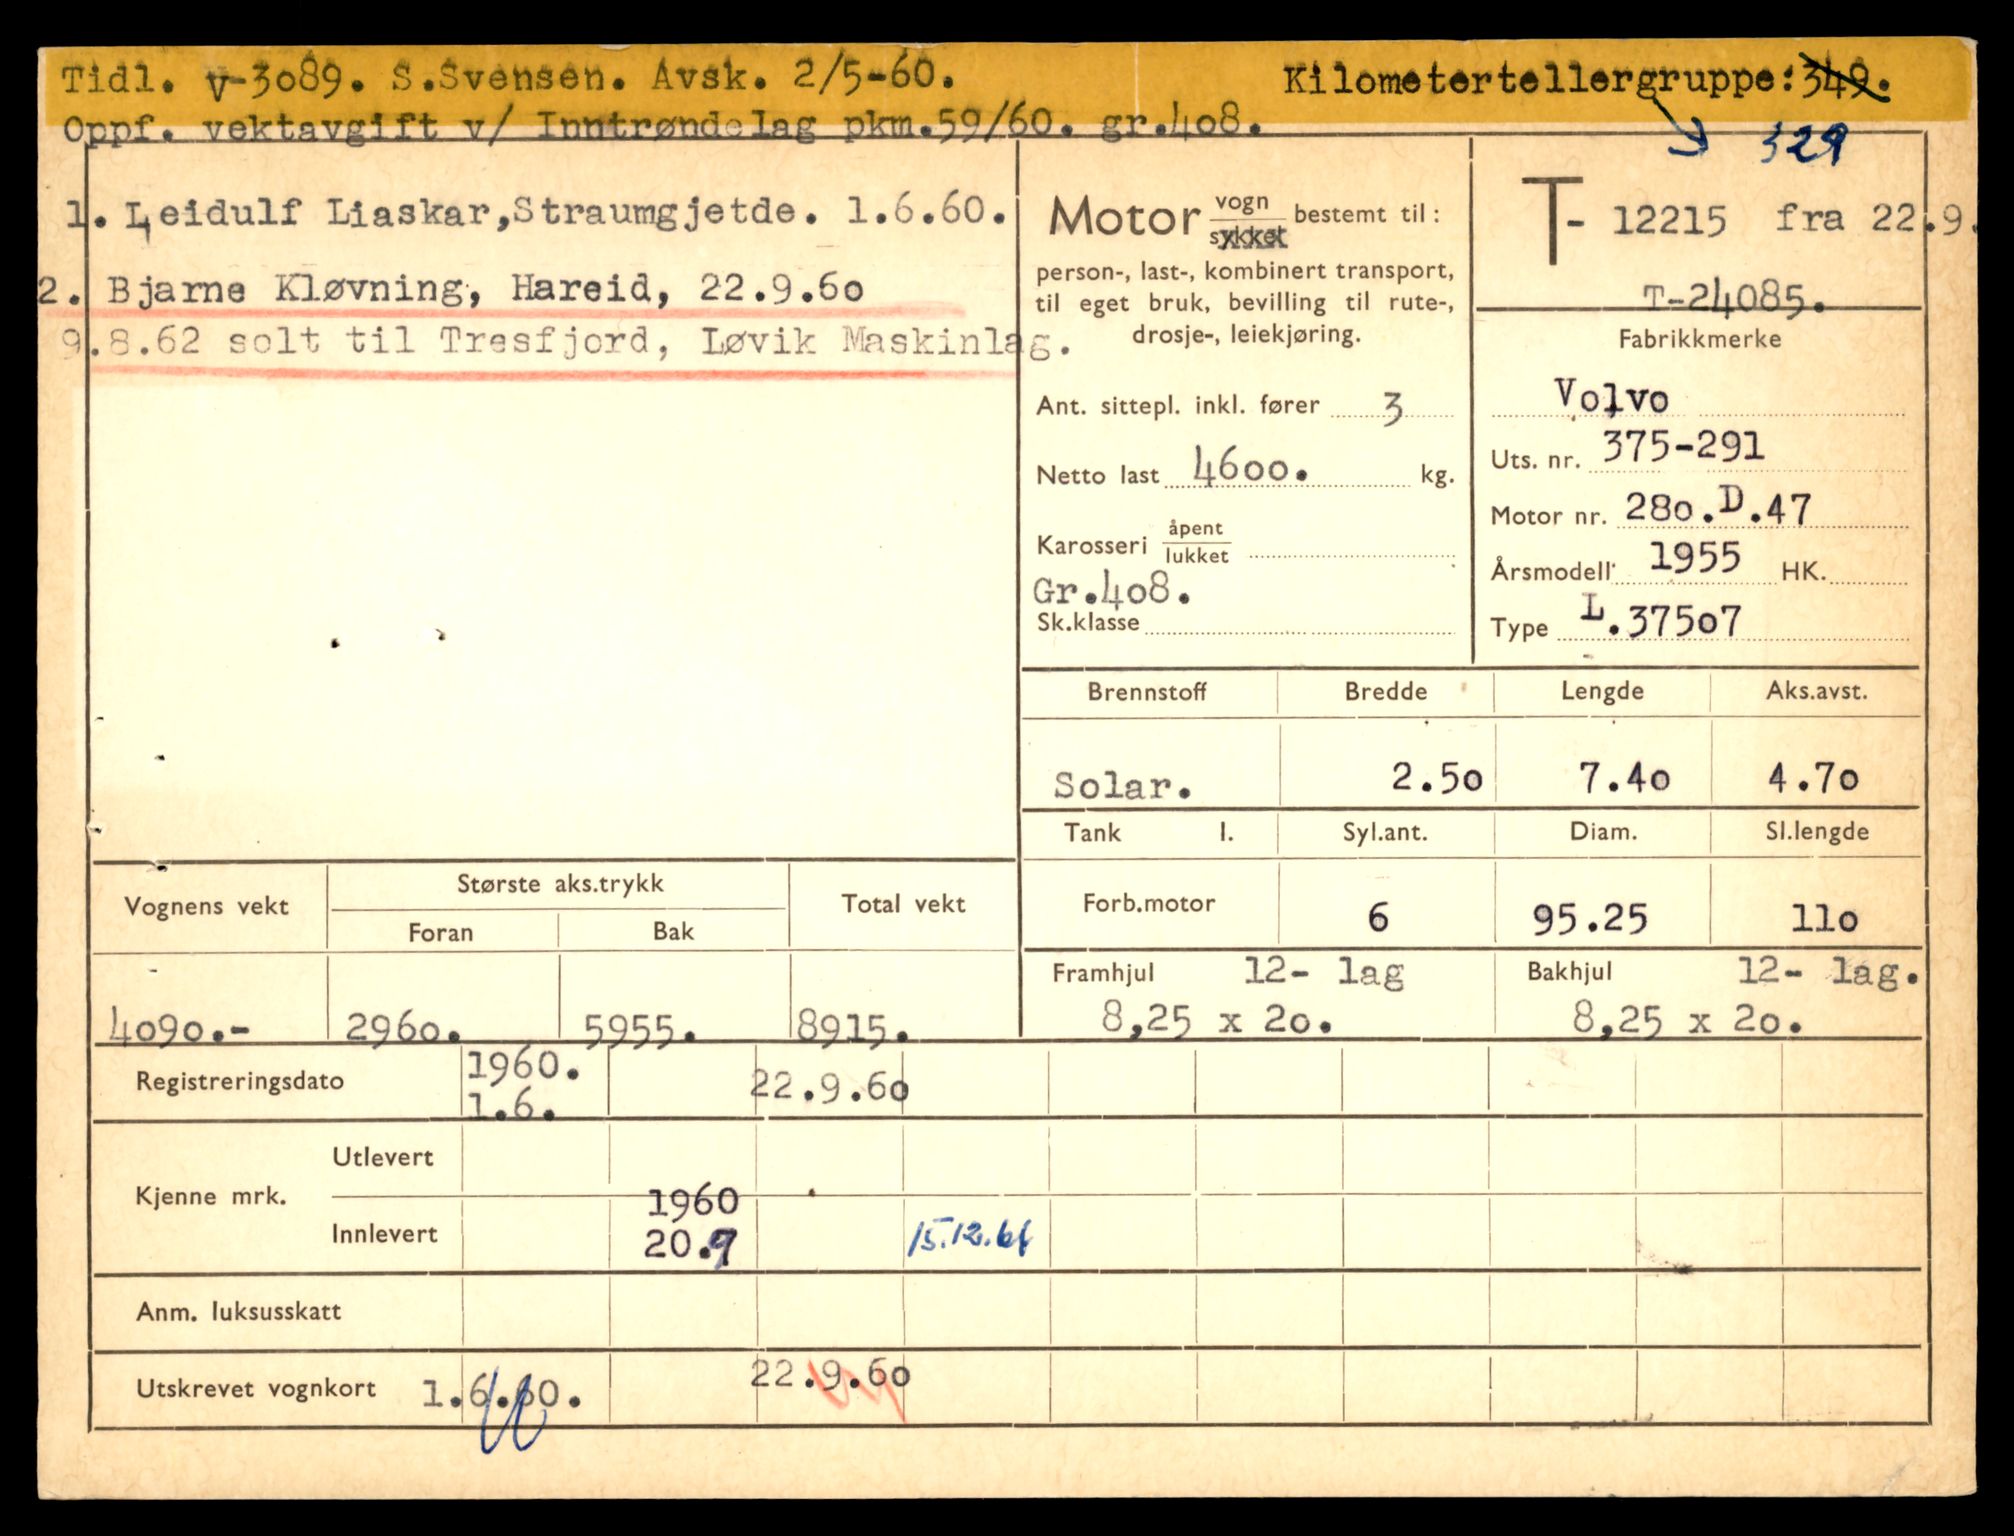 Tidl. V-3089. S.Svensen. Avsk. 2/5-60. Kilometertellergruppe: 349.
Oppf. vektavgift v/ Inntrøndelag pkm.59/60. gr.408.
329
1. Leidulf Liaskar,Straumgjetde. 1.6.60.
2. Bjarne Kløvning, Hareid, 22.9.60
9.8.62 solt til Tresfjord, Løvik Maskinlag.
Motor vogn bestemt til:
sykkel
person-, last-, kombinert transport,
til eget bruk, bevilling til rute-,
drosje-, leiekjøring.
Ant. sittepl. inkl. fører 3
Netto last 4600. kg.
Karosseri åpent
lukket
Gr.408.
Sk.klasse
T- 12215 fra 22.9.
T-24085.
Fabrikkmerke
Volvo
Uts. nr. 375-291
Motor nr. 280.D.47
Årsmodell 1955 HK.
Type L.37507
Brennstoff Bredde Lengde Aks.avst.
Solar. 2.50 7.40 4.70
Tank l. Syl.ant. Diam. Sl.lengde
Forb.motor 6 95.25 110
Framhjul 12- lag Bakhjul 12- lag.
8,25 x 20. 8,25 x 20.
Vognens vekt Største aks.trykk Total vekt
Foran Bak
4090.- 2960. 5955. 8915.
Registreringsdato 1960. 22.9.60
1.6.
Kjenne mrk. Utlevert
Innlevert 1960
20.9 15.12.61
Anm. luksusskatt
Utskrevet vognkort 1.6.60. 22.9.60